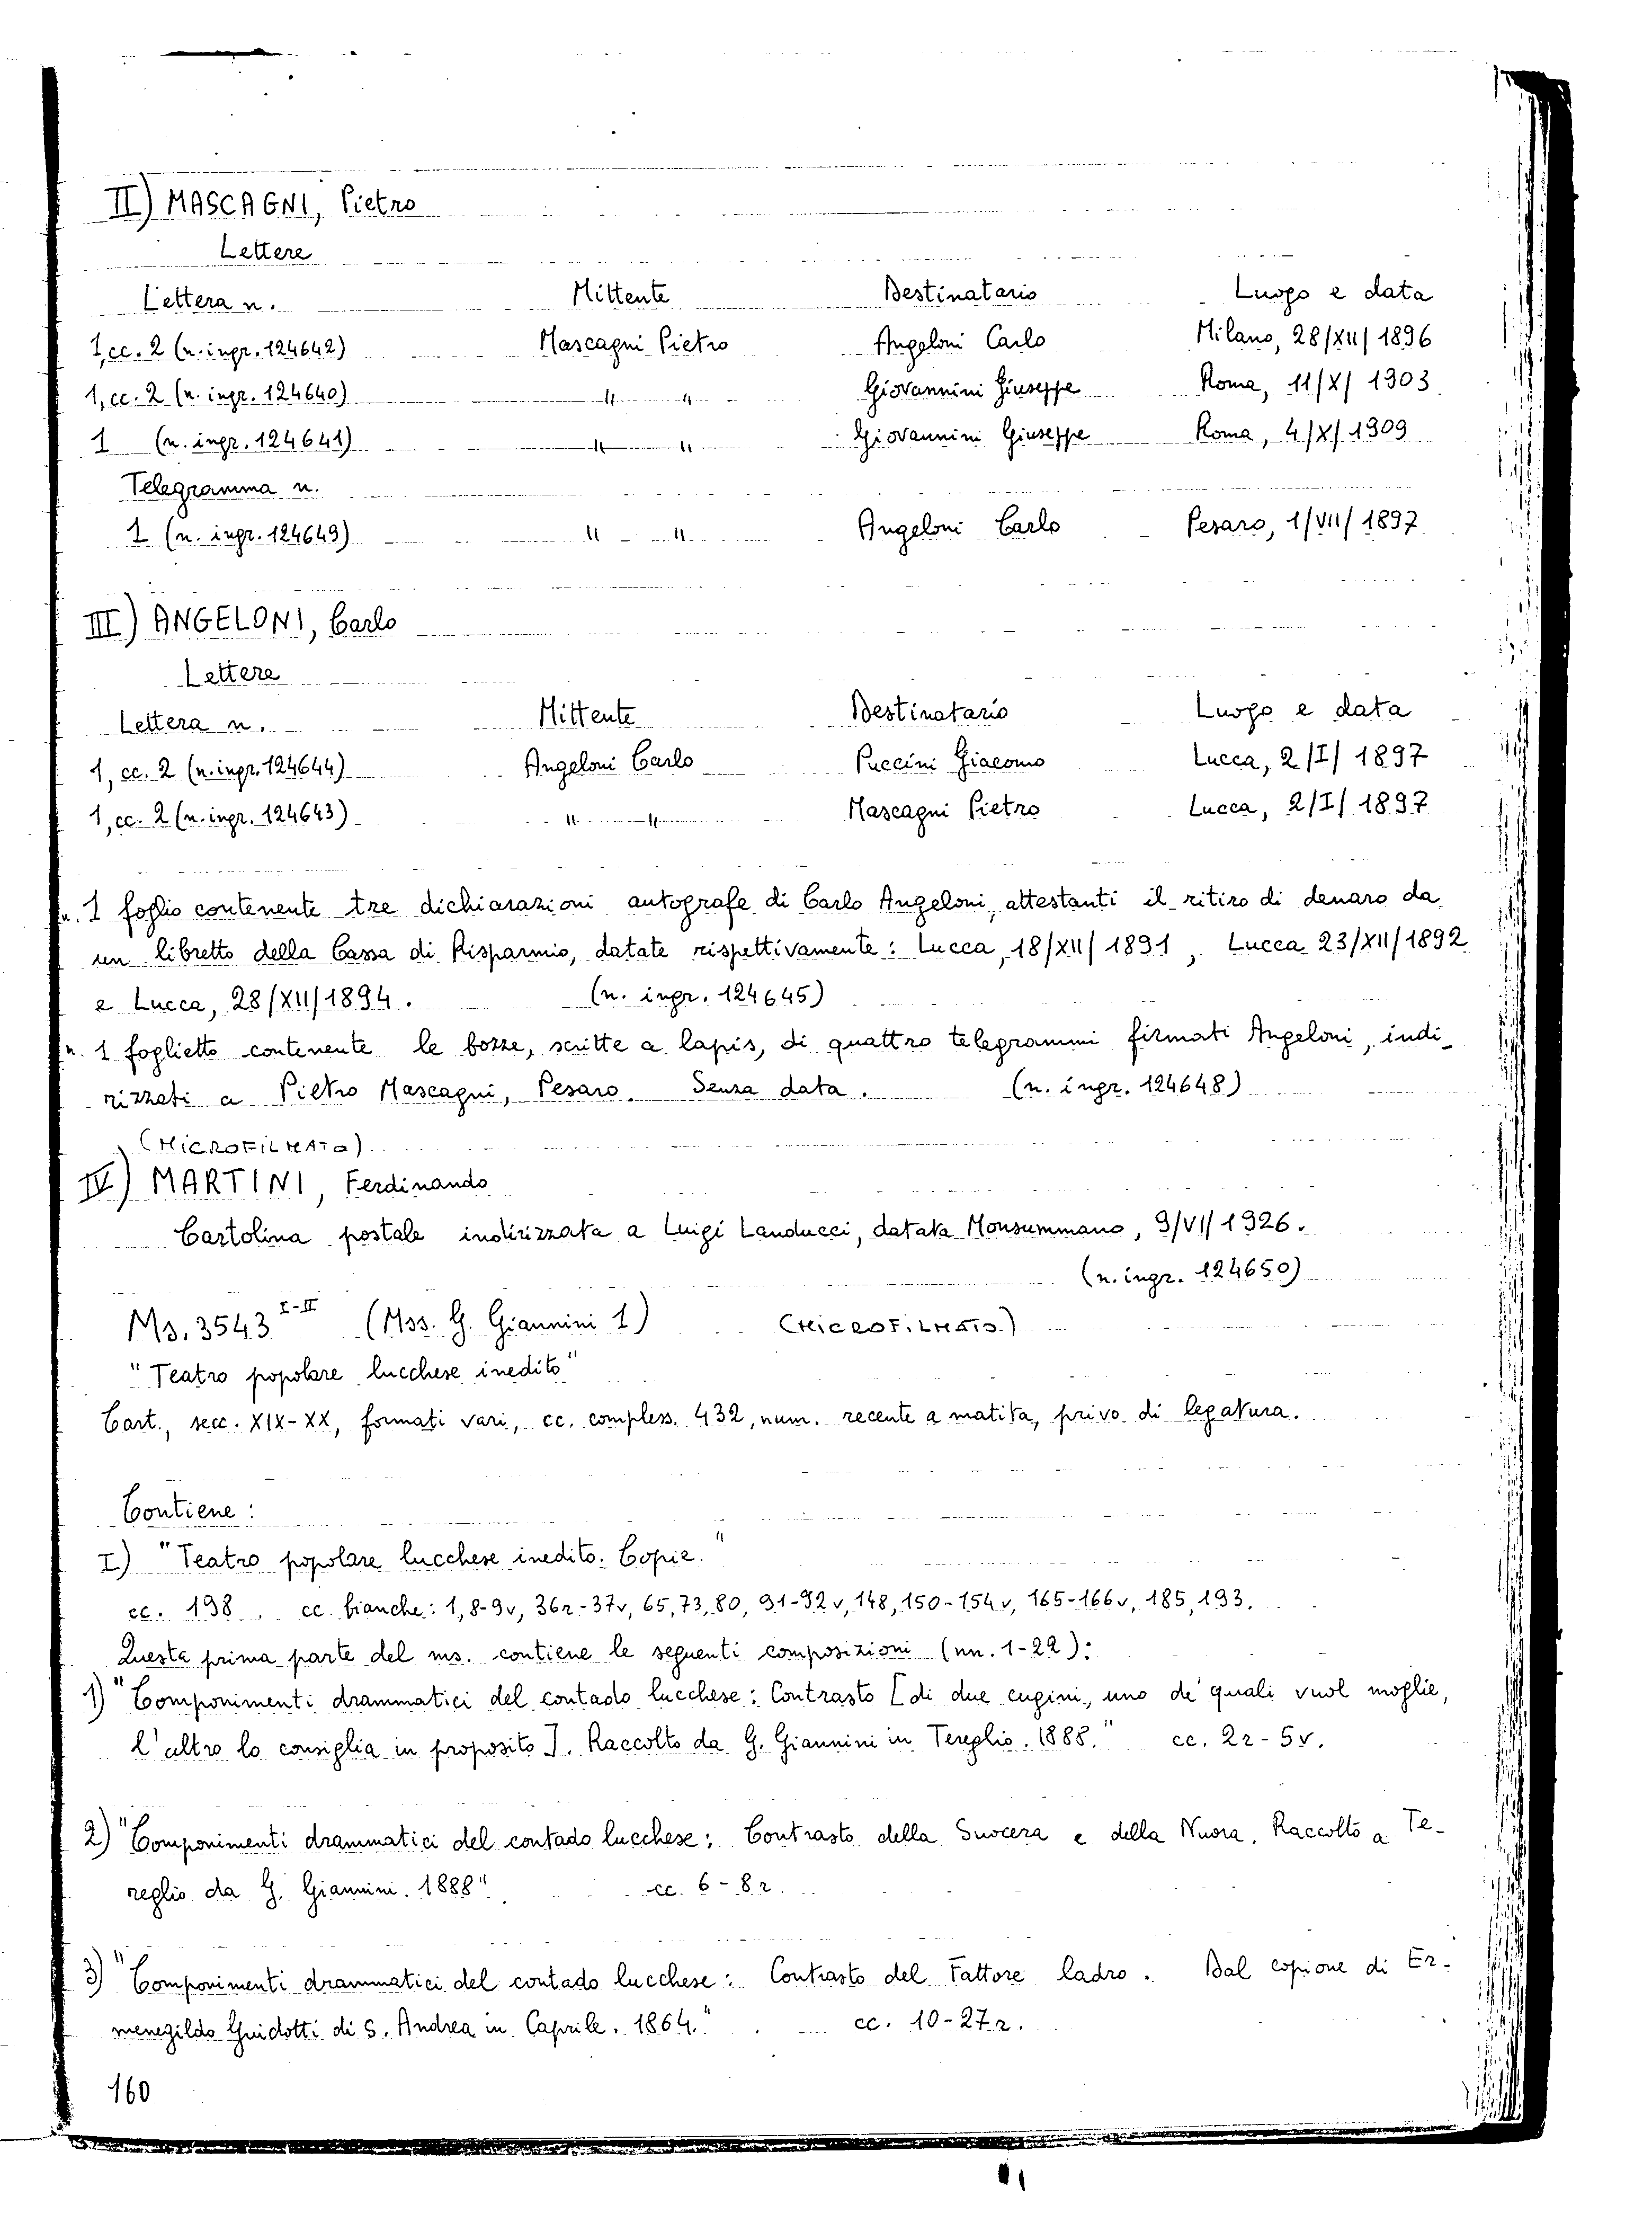 II) MASCAGNI, Pietro
Lettere
Lettera n. Mittente Destinatario Luogo e data
1, cc. 2 (n. ingr. 124642) Mascagni Pietro Angeloni Carlo Milano, 28/XII/1896
1, cc. 2 (n. ingr. 124640) " " Giovannini Giuseppe Roma, 11/X/1903
1 (n. ingr. 124641) " " Giovannini Giuseppe Roma, 4/X/1909
Telegramma n.
1 (n. ingr. 124649) " " Angeloni Carlo Pesaro, 1/VII/1897
III) ANGELONI, Carlo
Lettere
Lettera n. Mittente Destinatario Luogo e data
1, cc. 2 (n. ingr. 124644) Angeloni Carlo Puccini Giacomo Lucca, 2/I/1897
1, cc. 2 (n. ingr. 124643) " " Mascagni Pietro Lucca, 2/I/1897
n. 1 foglio contenente tre dichiarazioni autografe di Carlo Angeloni, attestanti il ritiro di denaro da
un libretto della Cassa di Risparmio, datate rispettivamente: Lucca, 18/XII/1891, Lucca 23/XII/1892
e Lucca, 28/XII/1894. (n. ingr. 124645)
n. 1 foglietto contenente le bozze, scritte a lapis, di quattro telegrammi firmati Angeloni, indi-
rizzati a Pietro Mascagni, Pesaro. Senza data. (n. ingr. 124648)
(MICROFILMATO)
IV) MARTINI, Ferdinando
Cartolina postale indirizzata a Luigi Landucci, datata Monsummano, 9/VI/1926.
(n. ingr. 124650)
Ms. 3543 I-II (Mss. G. Giannini 1) (MICROFILMATO)
"Teatro popolare lucchese inedito"
Cart., secc. XIX-XX, formati vari, cc. compless. 432, num. recente a matita, privo di legatura.
Contiene:
I) "Teatro popolare lucchese inedito. Copie."
cc. 198. cc. bianche: 1, 8-9v, 36r-37v, 65, 73, 80, 91-92v, 148, 150-154v, 165-166v, 185, 193.
Questa prima parte del ms. contiene le seguenti composizioni (nn. 1-22):
1) "Componimenti drammatici del contado lucchese: Contrasto [di due cugini, uno de' quali vuol moglie,
l'altro lo consiglia in proposito]. Raccolto da G. Giannini in Tereglio. 1888." cc. 2r-5v.
2) "Componimenti drammatici del contado lucchese: Contrasto della Suocera e della Nuora. Raccolto a Te-
reglio da G. Giannini. 1888" cc. 6-8r.
3) "Componimenti drammatici del contado lucchese: Contrasto del Fattore ladro. Dal copione di Er-
menegildo Guidotti di S. Andrea in Caprile. 1864." cc. 10-27r.
160